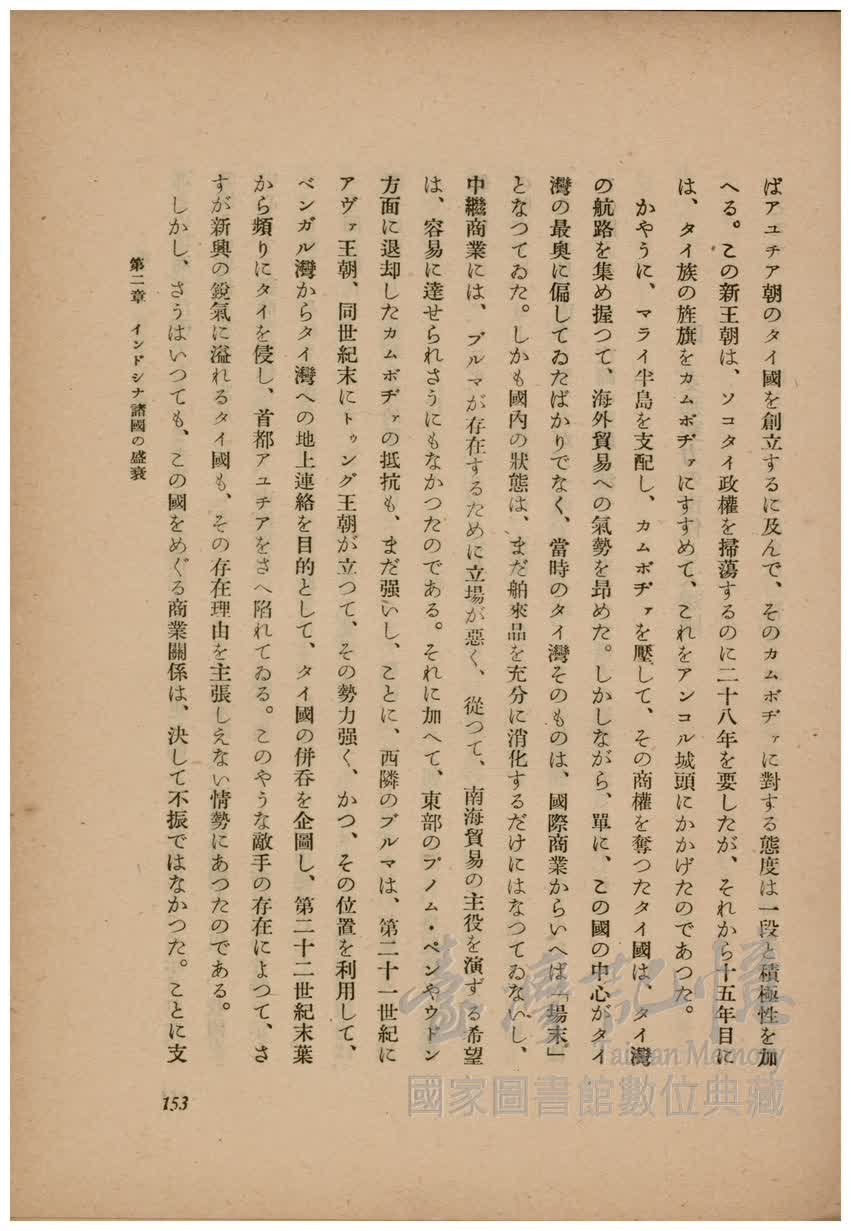 ばアユチア朝のタイ國を創立するに及んで、そのカムボヂァに對する態度は一段と積極性を加
へる。この新王朝は、ソコタイ政權を掃蕩するのに二十八年を要したが、それから十五年目に
は、タイ族の旌旗をカムボヂァにすすめて、これをアンコル城頭にかかげたのであつた。
かやうに、マライ半島を支配し、カムボヂァを壓して、その商權を奪つたタイ國は、タイ灣
の航路を集め握つて、海外貿易への氣勢を昂めた。しかしながら、單に、この國の中心がタイ
灣の最奥に偏してゐたばかりでなく、當時のタイ灣そのものは、國際商業からいへば「場末」
となつてゐた。しかも國內の狀態は、まだ舶來品を充分に消化するだけにはなつてゐないし、
中繼商業には、ブルマが存在するために立場が惡く、從つて、南海貿易の主役を演ずる希望
は、容易に達せられさうにもなかつたのである。それに加へて、東部のプノム・ペンやウドン
方面に退却したカムボヂァの抵抗も、まだ强いし、ことに、西隣のブルマは、第二十一世紀に
アヴァ王朝、同世紀末にトゥング王朝が立つて、その勢力强く、かつ、その位置を利用して、
ベンガル灣からタイ灣への地上連絡を目的として、タイ國の併吞を企圖し、第二十二世紀末葉
から頻りにタイを侵し、首都アユチアをさへ陷れてゐる。このやうな敵手の存在によつて、さ
すが新興の銳氣に溢れるタイ國も、その存在理由を主張しえない情勢にあつたのである。
しかし、さうはいつても、この國をめぐる商業關係は、決して不振ではなかつた。ことに支
第二章 インドシナ諸國の盛衰
153
臺灣記憶
Taiwan Memory
國家圖書館數位典藏